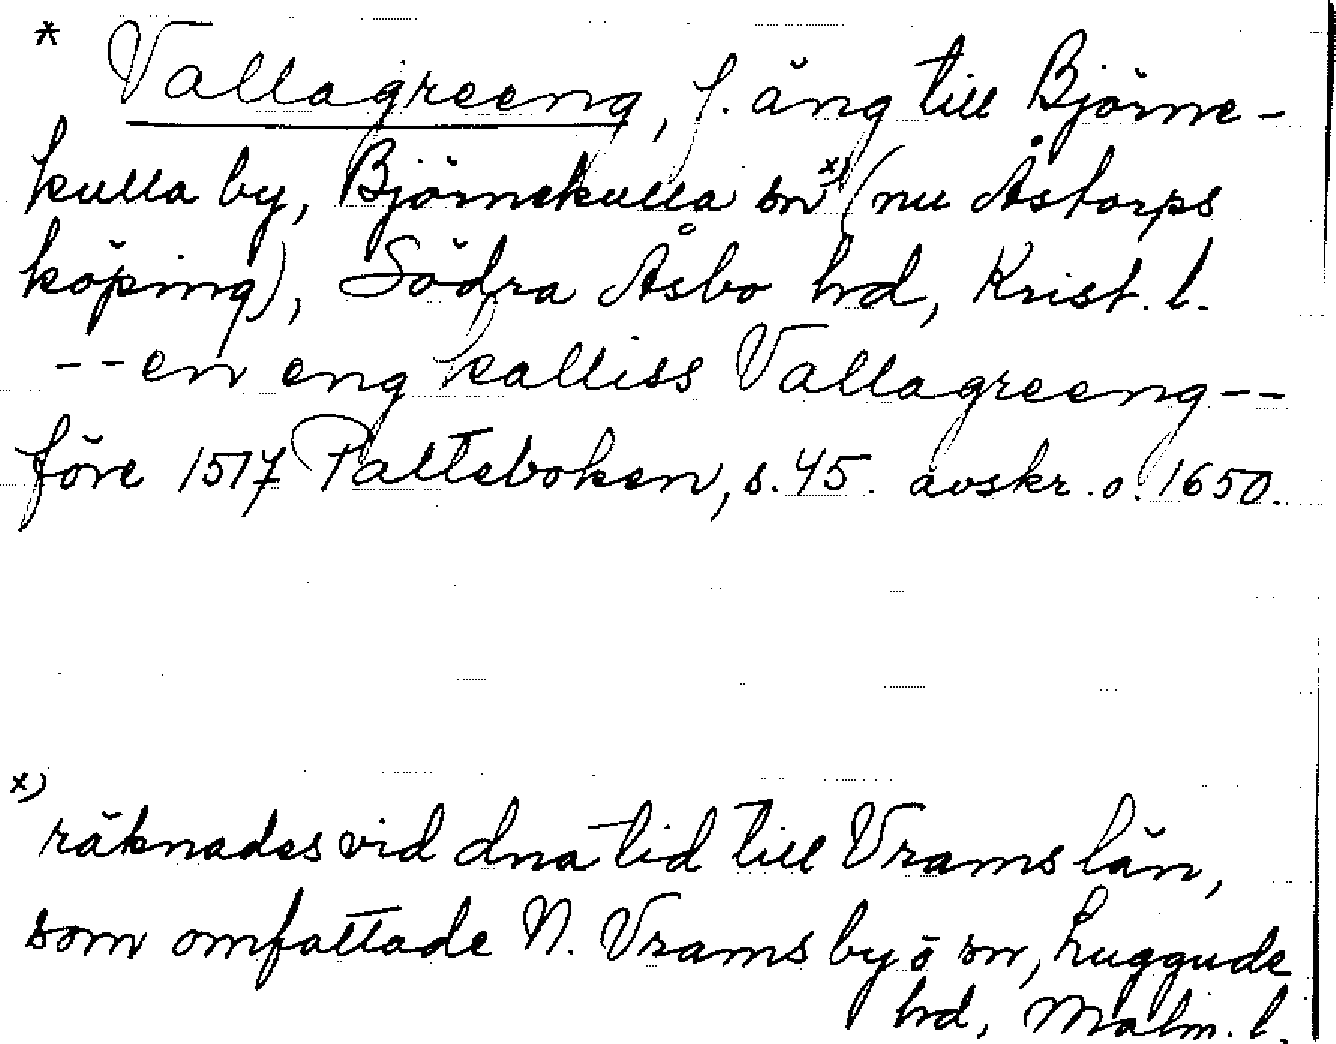 * Vallagreeng, f. äng till Björne-
kulla by, Björnekulla sn x) (nu Åstorps
köping), Södra Åsbo hd, Krist. l.
-- en eng kalliss Vallagreeng --
före 1517 Palteboken, s. 45. avskr. o. 1650.
x)
räknades vid dna tid till Vrams län,
som omfattade N. Vrams by o sn, Luggude
hd, Malm. l.